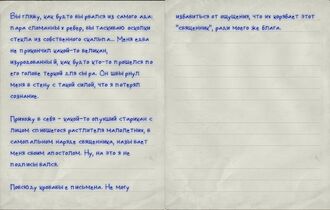 Выгляжу, как будто вырвался из самого ада:
пара сломанных ребер, вытаскиваю осколки
стекла из собственного скальпа... Меня едва
не прикончил какой-то великан,
изуродованный, как будто кто-то прошелся по
его голове теркой для сыра. Он швырнул
меня в стену с такой силой, что я потерял
сознание.
Прихожу в себя - какой-то опухший старикан с
лицом спившегося растлителя малолетних, в
самопальном наряде священника, называет
меня своим апостолом. Ну, на это я не
подписывался.
Повсюду кровавые письмена. Не могу
избавиться от ощущения, что их корябает этот
"священник", ради моего же блага.